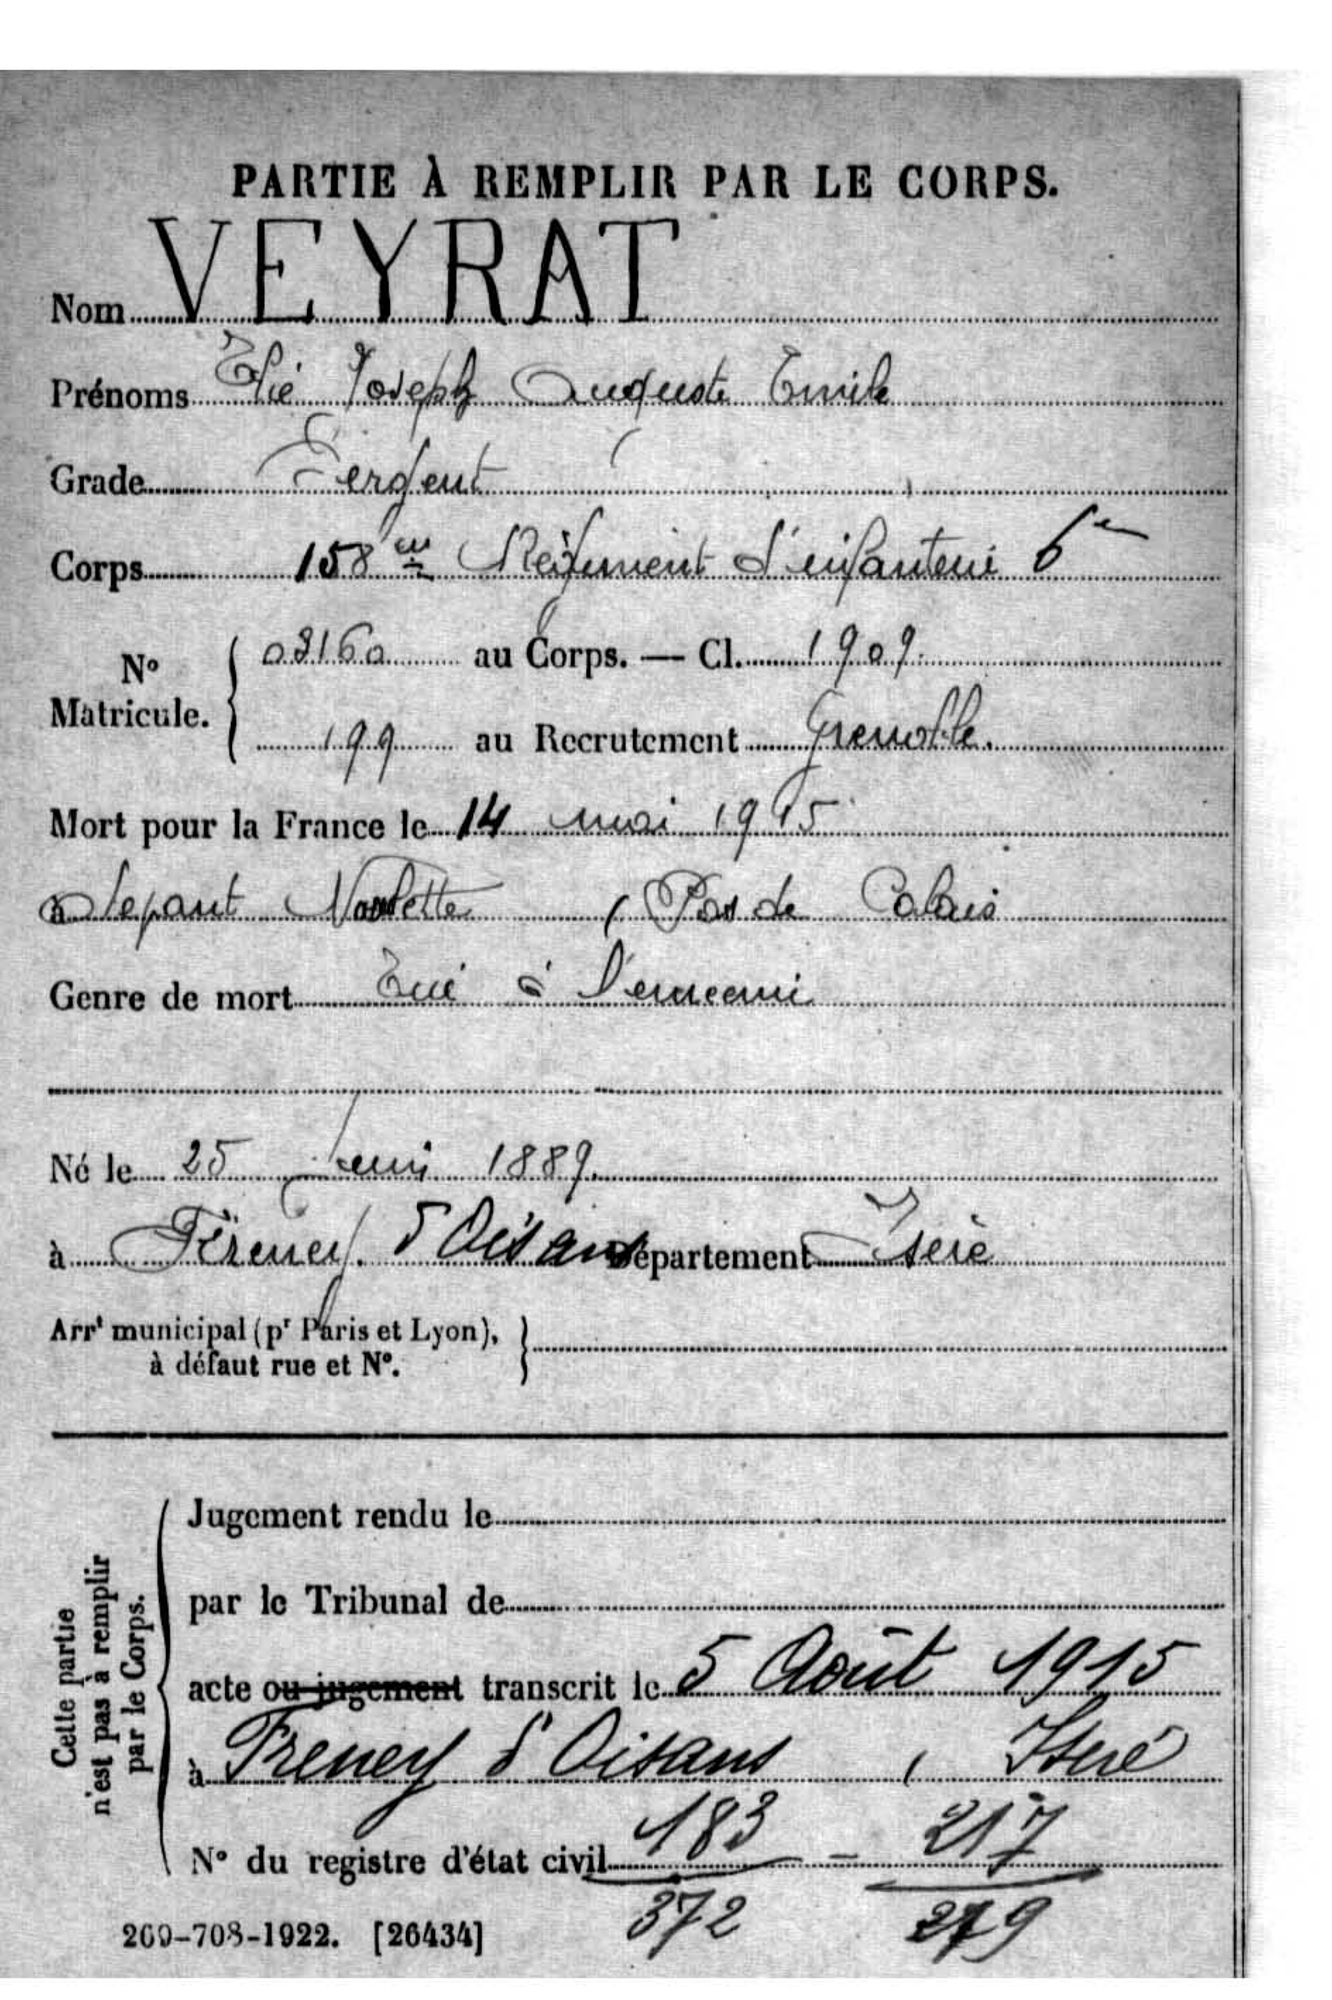 PARTIE À REMPLIR PAR LE CORPS.
Nom VEYRAT
Prénoms Elie Joseph Auguste Emile
Grade Sergent
Corps 158me Régiment d'infanterie 6e
No Matricule. { 03160 au Corps. — Cl. 1909.
199 au Recrutement Grenoble.
Mort pour la France le 14 mai 1915
à devant Noulette, Pas de Calais
Genre de mort Tué à l'ennemi
Né le 25 Juin 1889.
à Freney d'Oisans Département Isère
Arrt municipal (pr Paris et Lyon), }
à défaut rue et No.
Cette partie n'est pas à remplir par le Corps.
Jugement rendu le
par le Tribunal de
acte ou jugement transcrit le 5 Août 1915
à Freney d'Oisans, Isère
No du registre d'état civil 183 - 217
372 279
269-708-1922. [26434]